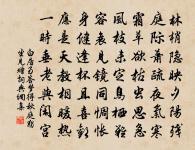 林梢隱映夕陽殘
庭際蕭疏夜氣寒
霜草欲枯蟲思急
風枝未定鳥棲難
容衰見鏡同惆悵
身健逢杯且喜歡
應是天教相暖熱
一時垂老與閑官
白居易答夢得秋庭獨
坐見贈